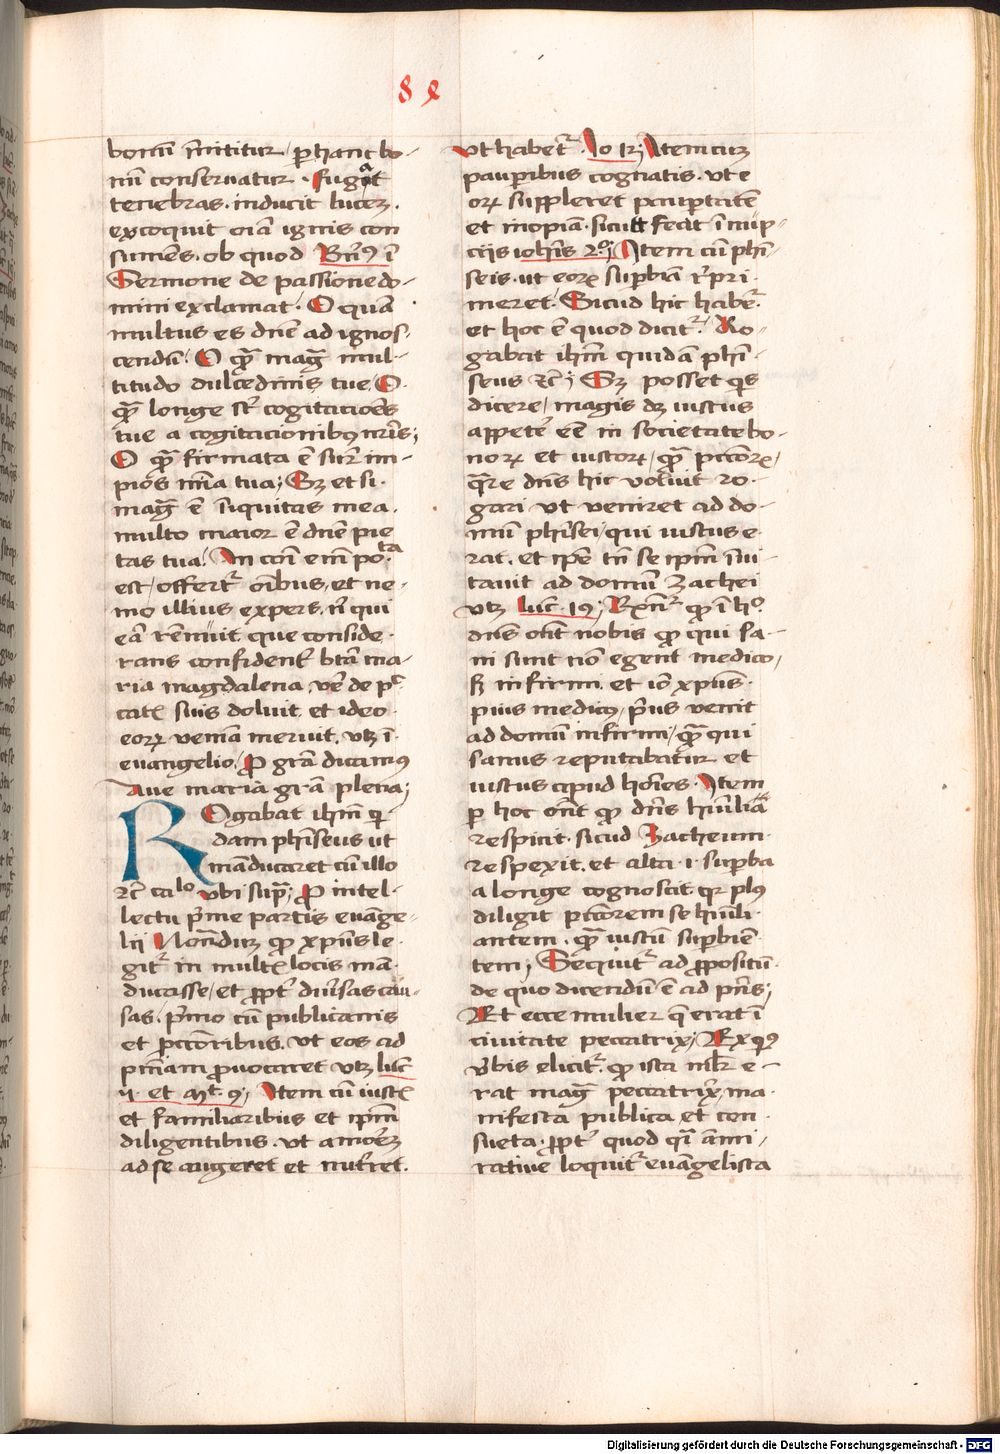 84
bonū īmittitur / ꝑ hanc bo-
nū conseruatur . fugat
tenebras . inducit lucem .
excoquit oīa ignis con
sumēs . ob quod Bern᷒ ī
Sermone de passione do-
mini exclamat . O quā
multus es dn̄e ad ignos-
cendū . O qm̄ mag̅ mul-
titudo dulcedinis tue / O
qm̄ longe st̄ cogitacōes
tue a cogitacionibus nr̄is ;
O qm̄ firmata ē sup̄ im-
pios mīa tua ; Sꝫ et si
mag̅ ē īiquitas mea
multo maior ē dn̄e pie
tas tua . In com̄ em̄ po.ta
est / offert᷑ oībus , et ne-
mo illius expers , n̄ qui
eā rēnuit , que conside-
rans confident᷑ btā ma-
ria magdalena , vē de pc̄
catꝭ suis doluit , et ideo
eoꝝ veniā meruit , vtꝫ ī
euangelio . Pro grā dicamus
Aue maria grā plena ;
ROgabat ihm̄ qi
dam phīseus ut
māducaret cū illo
ꝛc̄ calo vbi sup̄ ; Pro intel-
lectu p̄me partis euāge-
lii Notandum qd̄ xp̄us le-
git᷑ in multꝭ locis man-
ducasse / et ꝓpt᷑ diūsas cau-
sas . p̄mo cū publicanis
et pctōribus . vt eos ad
pn̄iam ꝓuocaret vtꝫ luc̄
ii . et mt̄ . 9 ; Item cū iustꝭ
et familiaribus et ip̄m
diligentibus . vt amorem
ad se augeret et nut᷑ret .
vt habet᷑ . Io 12 ; Item cum
pauꝑibus cognatis . vt e
oꝝ suppleret paupertatē
et inopiā . sicut fecit ī nup-
ciis iohīs 2.º ; Item cū phī-
seis . ut eoꝝ suꝑbiā rep̄ri-
meret . Sicud hic habet᷑ .
et hoc ē quod dicit᷑ . Ro-
gabat ihm̄ quidā phī-
seus ꝛc̄ ; Sꝫ posset qs
dicere / magis dꝫ iustus
appete᷑ eē in societate bo-
noꝝ et iustoꝝ / qm̄ pctōꝝ /
quare dn̄s hic voluit ro-
gari vt veniret ad do-
mū phīsei / qui iustus e-
rat . et ip̄e tn̄ se ip̄m īui-
tauit ad domū Zachei
vtꝫ luc̄ . 19 ; Rn̄det᷑ qd̄ ī hº
dn̄s on̄t nobis qd̄ qui sa-
ni sunt nō egent medico ,
sꝫ infirmi , et iō xp̄us
pius medicus / p̄us venit
ad domū infirmi / qm̄ qui
sanus reputabatur et
iustus apud hoīes . Item
ꝑ hoc on̄t qd̄ dn̄s humilia
respicit . sicud Zacheum
respexit . et alta .i. suꝑba
a longe cognoscit . qr plus
diligit pctōrem se humili-
antem . qm̄ iustū suꝑbien-
tem ; Sequit᷑ ad ꝓpositū
de quo dicendū ē ad pn̄s ;
Et ecce mulier q̄ erat ī
ciuitate peccatrix ; Ex quibus
v̄bis elicit᷑ . qd̄ ista ml̄r e-
rat mag̅ peccatrix , ma-
nifesta publica et con-
sueta . ꝓpt᷑ quod qi āmi-
ratiue loquit᷑ euāgelista
Digitalisierung gefördert durch die Deutsche Forschungsgemeinschaft - DFG